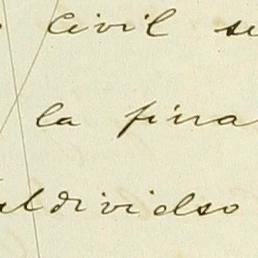 civil se
la finca
aldivielso